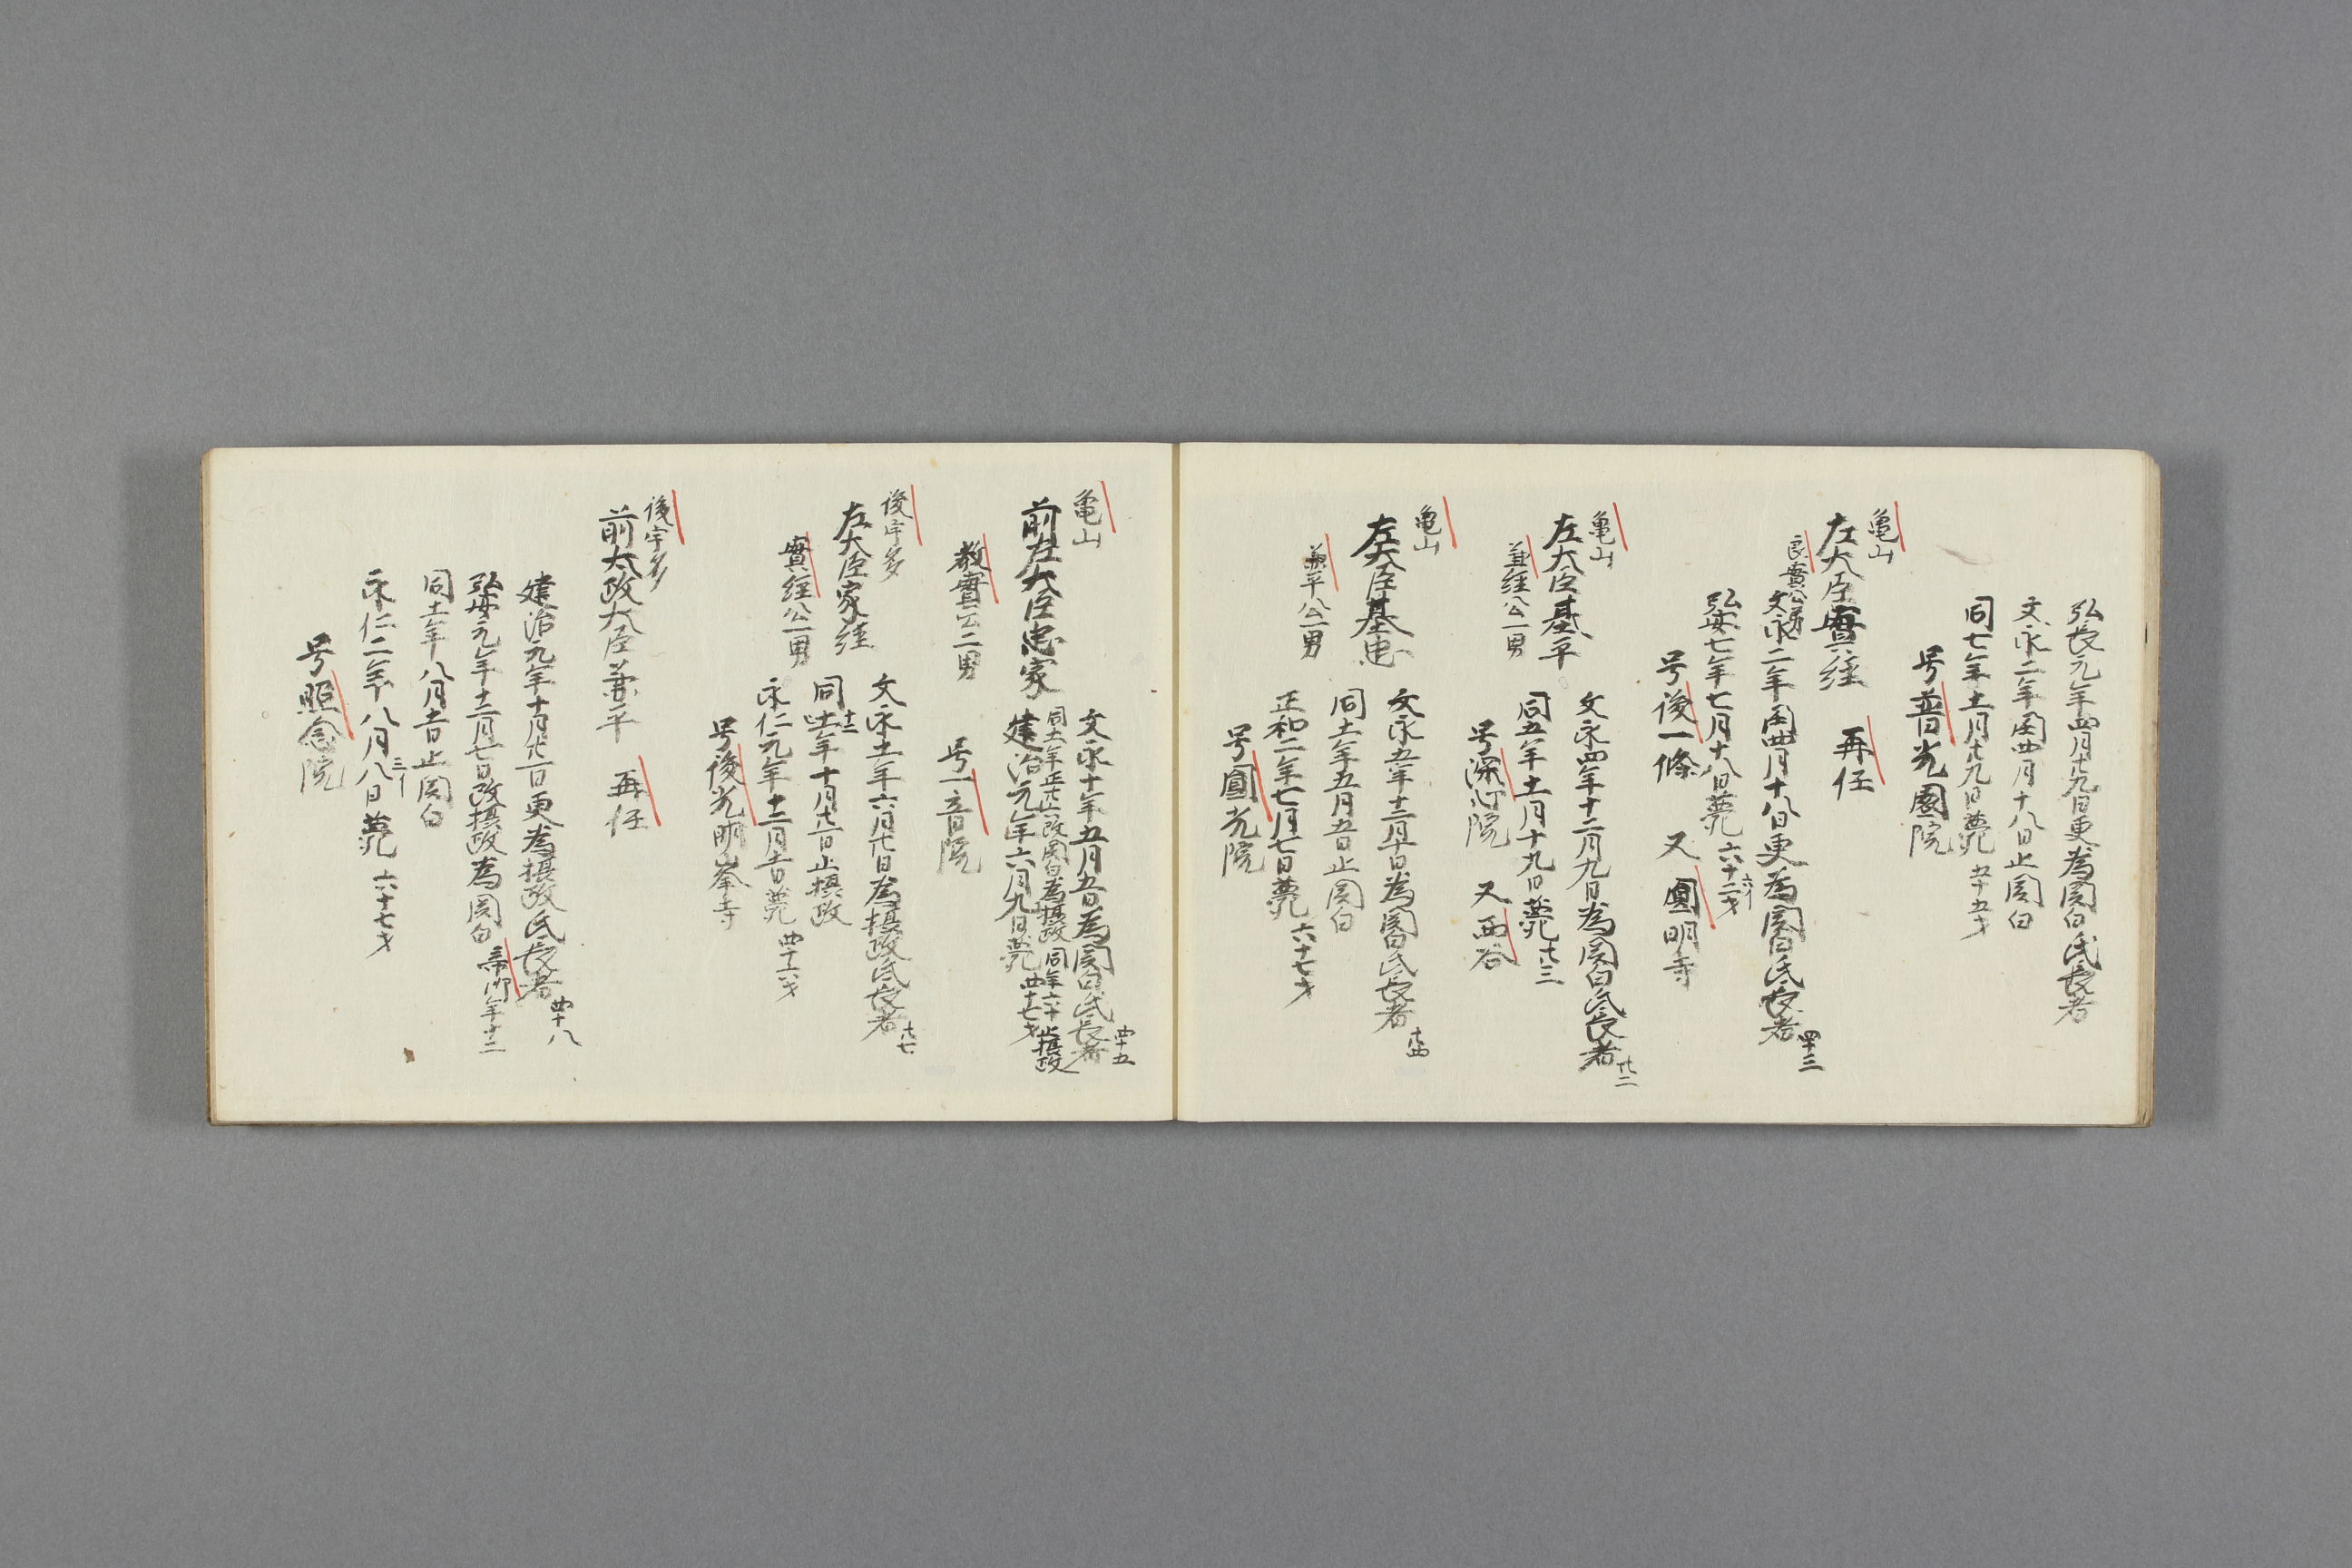 弘長元年四月廿九日更為関白氏長者
文永二年閏四月十八日止関白
同七年十一月廿九日薨 五十五才
号普光園院
亀山
左大臣實経 再任
良實公弟
文永二年閏四月十八日更為関白氏長者 四十三
弘安七年七月十八日薨 六十二才
号後一條 又圓明寺
亀山
左大臣基平
兼経公一男
文永四年十二月九日為関白氏長者 廿二
同五年十一月十九日薨 廿三
号深心院 又西谷
亀山
左大臣基忠
兼平公一男
文永五年十二月十日為関白氏長者 廿四
同十年五月五日止関白
正和二年七月七日薨 六十七才
号圓光院
亀山
前左大臣忠家
教實公二男
文永十年五月五日為関白氏長者 四十五
同十一年正廿六改関白為摂政 同年六廿 止摂政
建治元年六月九日薨 四十七才
号一音院
後宇多
左大臣家経
實経公一男
文永十一年六月廿日為摂政氏長者 廿七
同十二年十月廿一日止摂政
永仁元年十二月十一日薨 四十六才
号後光明峯寺
後宇多
前太政大臣兼平 再任
建治元年十月廿一日更為摂政氏長者 四十八
弘安元年十二月七日改摂政為関白 帝御年十二
同十年八月十一日止関白
永仁二年八月八日薨 六十七才
号照念院